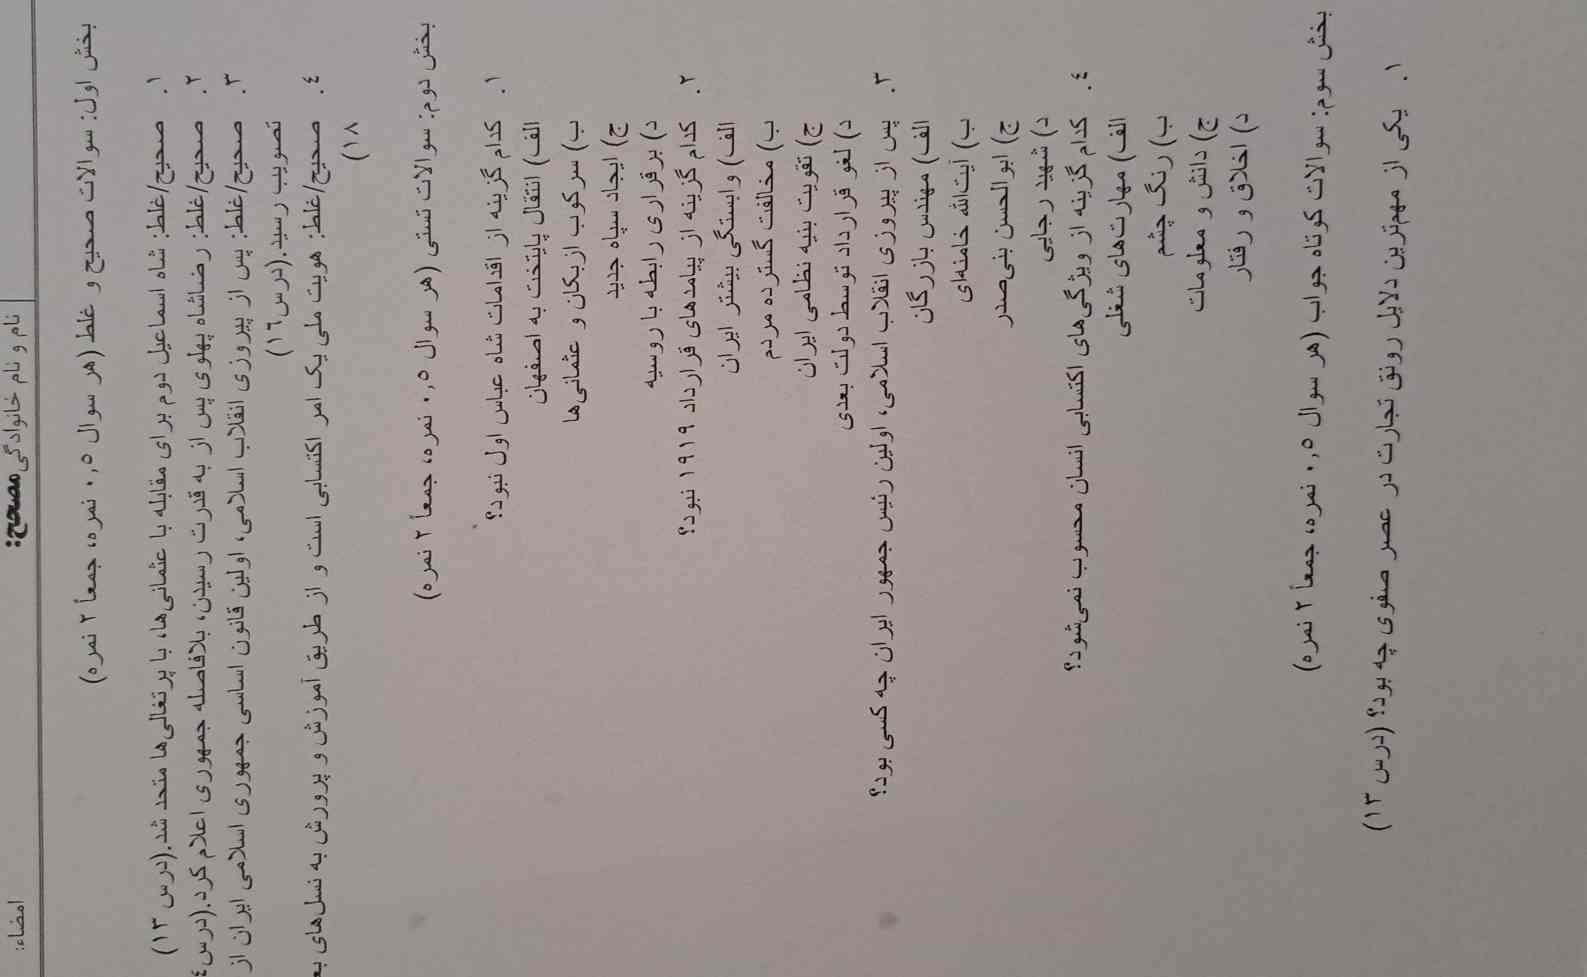 نام و نام خانوادگی مصحح:
امضاء:
بخش اول: سوالات صحیح و غلط (هر سوال ۰,۵ نمره، جمعاً ۲ نمره)
۱. صحیح/غلط: شاه اسماعیل دوم برای مقابله با عثمانی‌ها، با پرتغالی‌ها متحد شد.(درس ۱۳)
۲. صحیح/غلط: رضاشاه پهلوی پس از به قدرت رسیدن، بلافاصله جمهوری اعلام کرد.(درس
۳. صحیح/غلط: پس از پیروزی انقلاب اسلامی، اولین قانون اساسی جمهوری اسلامی ایران از
تصویب رسید.(درس۱۶)
۴. صحیح/غلط: هویت ملی یک امر اکتسابی است و از طریق آموزش و پرورش به نسل‌های
۱۸)
بخش دوم: سوالات تستی (هر سوال ۰,۵ نمره، جمعاً ۲ نمره)
۱. کدام گزینه از اقدامات شاه عباس اول نبود؟
الف) انتقال پایتخت به اصفهان
ب) سرکوب ازبکان و عثمانی‌ها
ج) ایجاد سپاه جدید
د) برقراری رابطه با روسیه
۲. کدام گزینه از پیامدهای قرارداد ۱۹۱۹ نبود؟
الف) وابستگی بیشتر ایران
ب) مخالفت گسترده مردم
ج) تقویت بنیه نظامی ایران
د) لغو قرارداد توسط دولت بعدی
۳. پس از پیروزی انقلاب اسلامی، اولین رئیس جمهور ایران چه کسی بود؟
الف) مهندس بازرگان
ب) آیت‌الله خامنه‌ای
ج) ابوالحسن بنی‌صدر
د) شهید رجایی
۴. کدام گزینه از ویژگی‌های اکتسابی انسان محسوب نمی‌شود؟
الف) مهارت‌های شغلی
ب) رنگ چشم
ج) دانش و معلومات
د) اخلاق و رفتار
بخش سوم: سوالات کوتاه جواب (هر سوال ۰,۵ نمره، جمعاً ۲ نمره)
۱. یکی از مهم‌ترین دلایل رونق تجارت در عصر صفوی چه بود؟ (درس ۱۳)